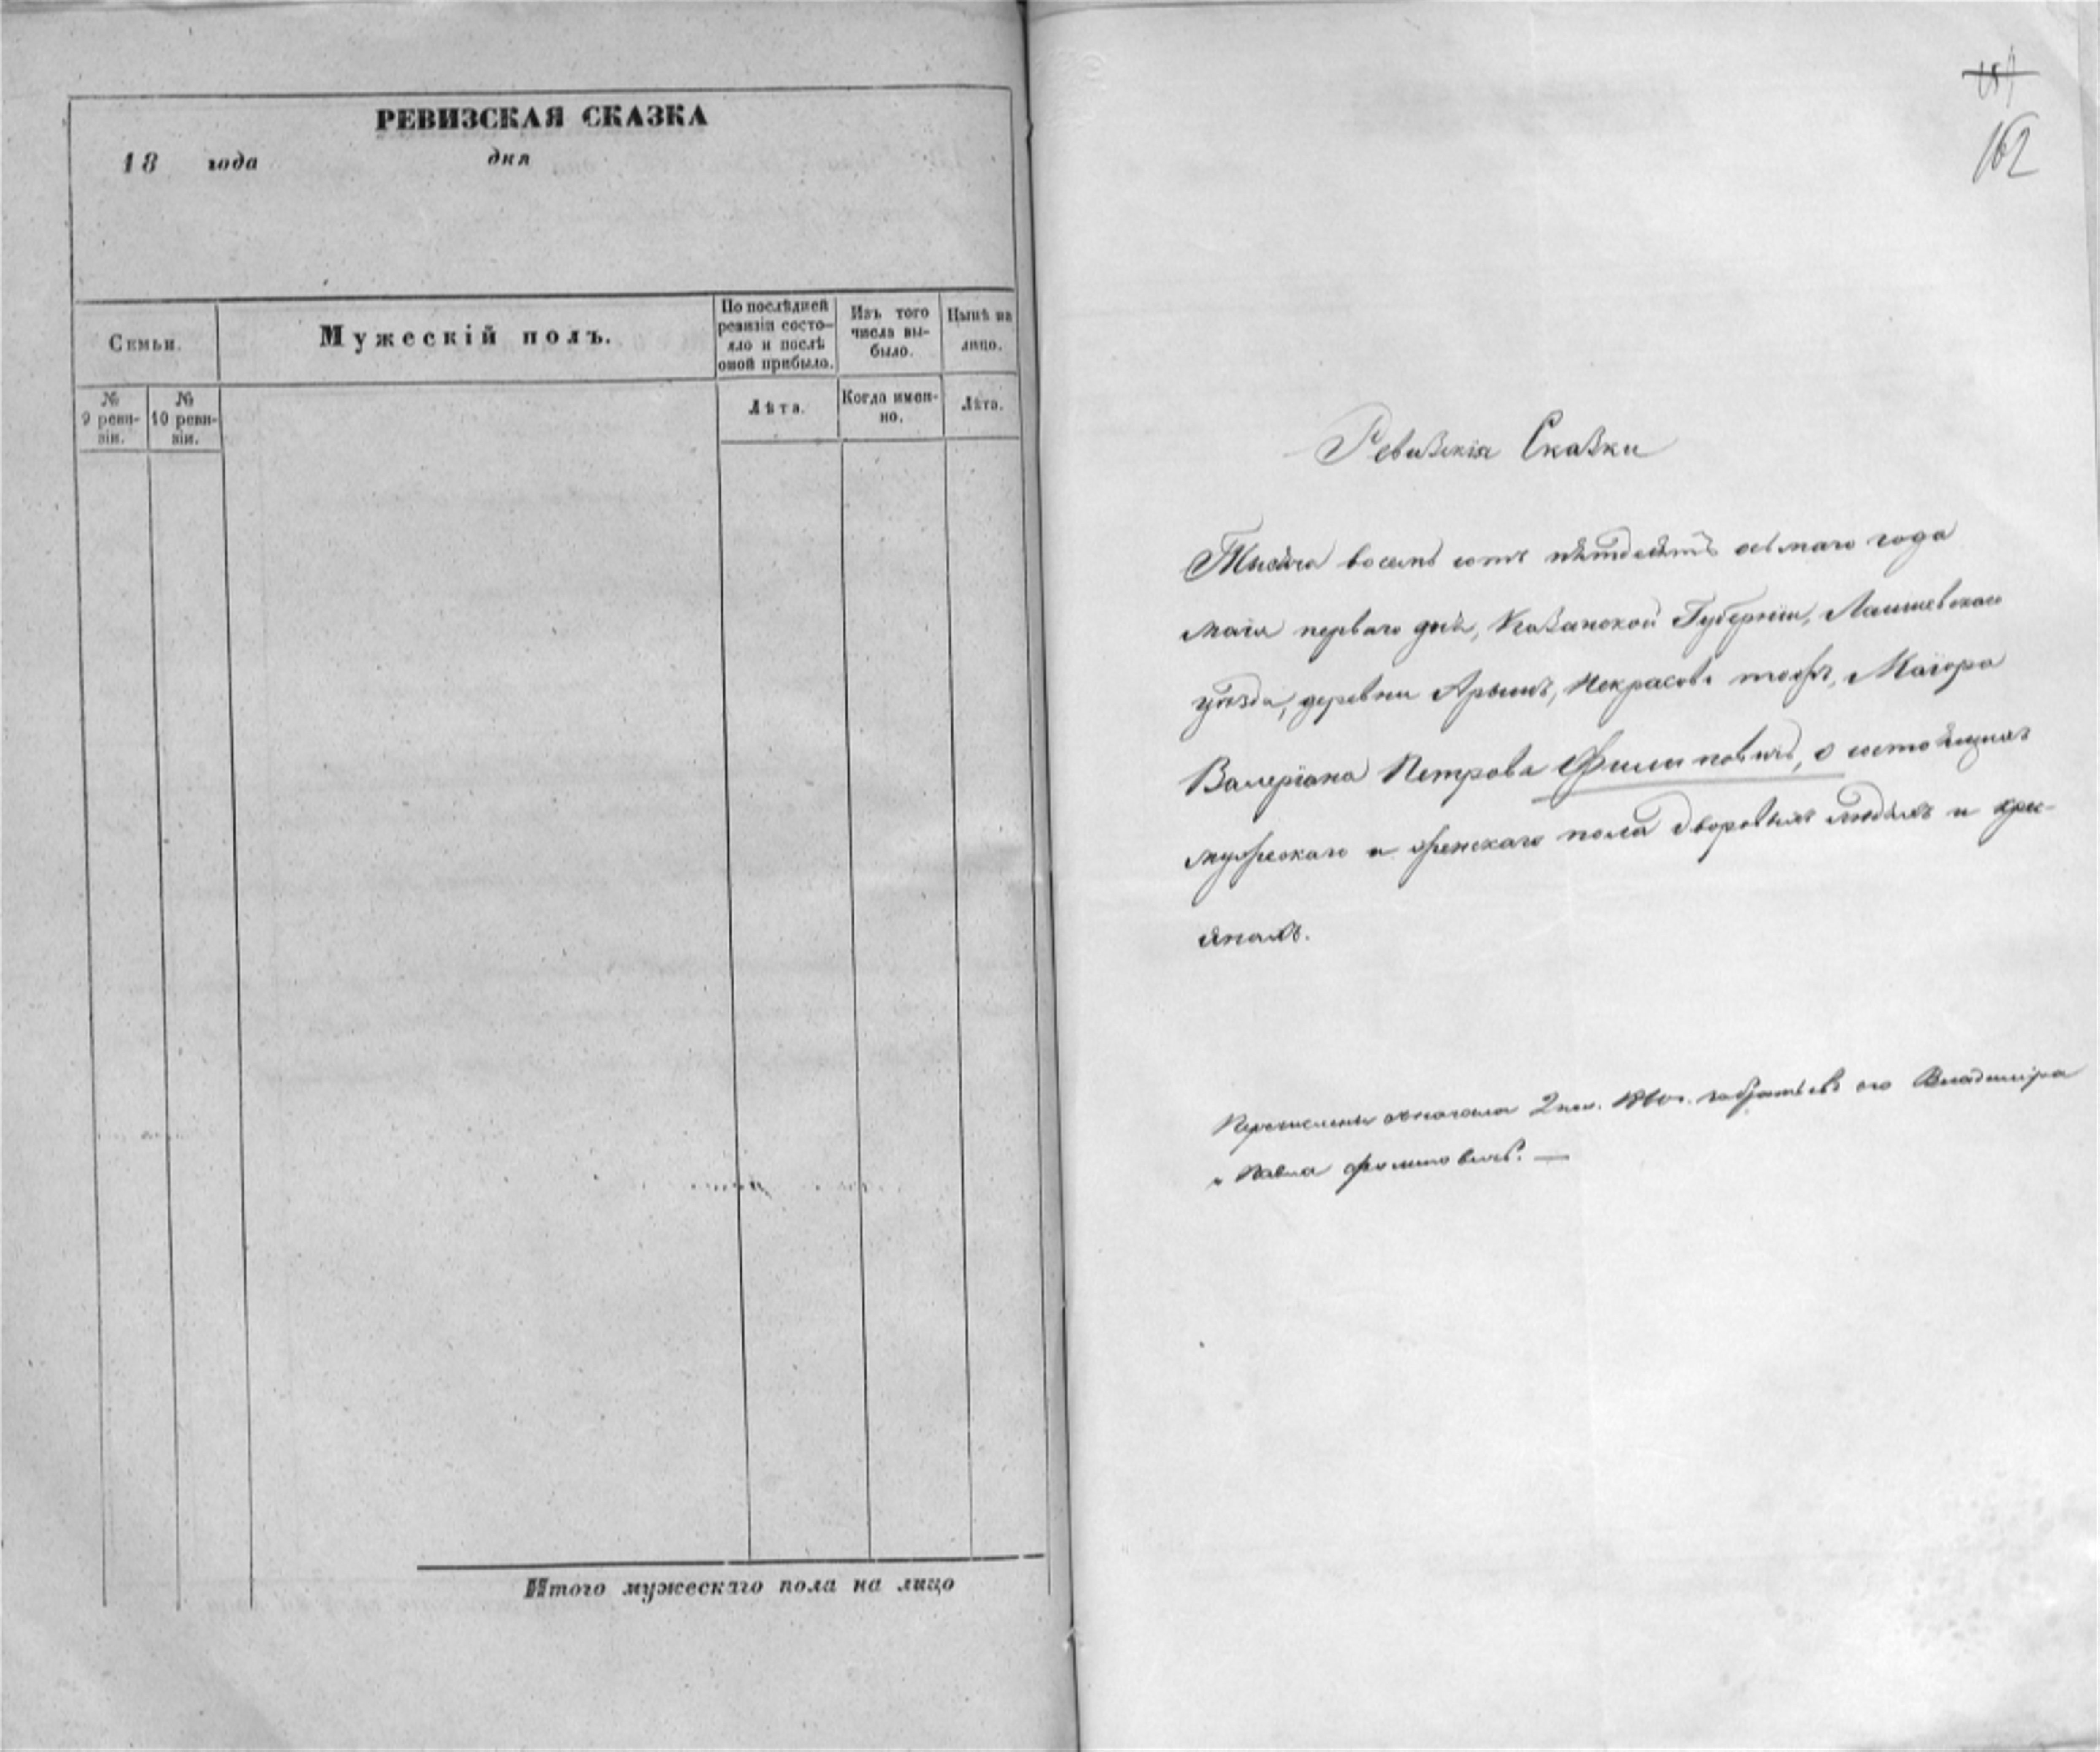 РЕВИЗСКАЯ СКАЗКА
18 года дня
Семьи.
Мужескій полъ.
По послѣдней
ревизіи состо-
яло и послѣ
оной прибыло.
Изъ того
числа вы-
было.
Нынѣ на
лицо.
№
9 реви-
зіи.
№
10 реви-
зіи.
Лѣта.
Когда имен-
но.
Лѣта.
Итого мужескаго пола на лицо
162
Ревизкія Сказки
Тысяча восемь сотъ пятдесятъ осьмаго года
маія перваго дня, Казанской Губерніи, Лаишевскаго
уѣзда, деревни Арышъ, Некрасова тожъ, Маіора
Валеріана Петрова Филиповичь, о состоящихъ
мужескаго и женскаго пола дворовыхъ людяхъ и крес-
янахъ.
Перечислены 2 пол. 1860 г. его Владиміра
и Павла Филиповичь. —